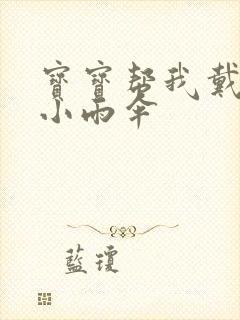 寶寶幫我戴
小雨傘
藍瓊